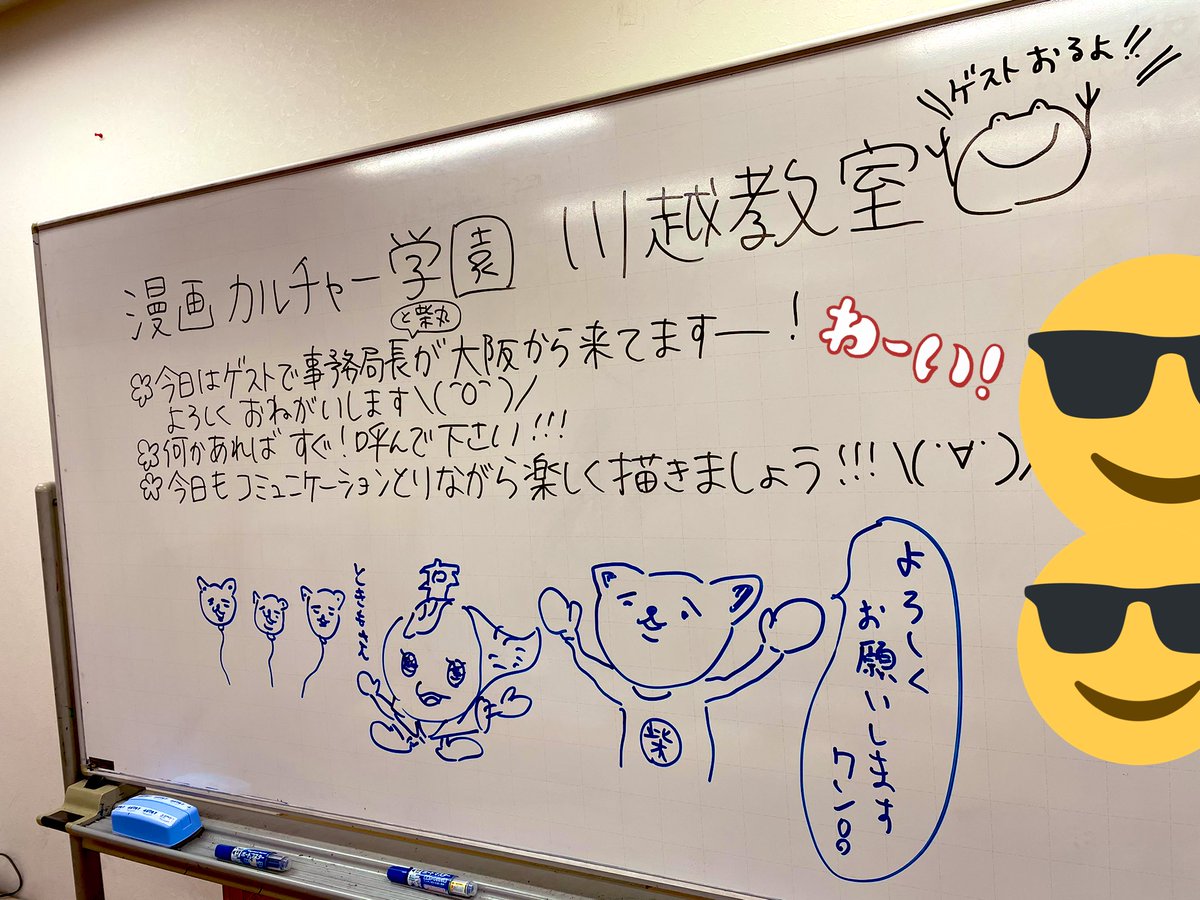 ゲストおるよ!!
漫画カルチャー学園 川越教室
と柴丸
✿今日はゲストで事務局長が大阪から来てますー!
わーい!
よろしくおねがいします\(^O^)/
✿何かあればすぐ!呼んで下さい!!!
✿今日もコミュニケーションとりながら楽しく描きましょう!!!\(・∀・)/
よろしく
お願いします
ワン。
柴